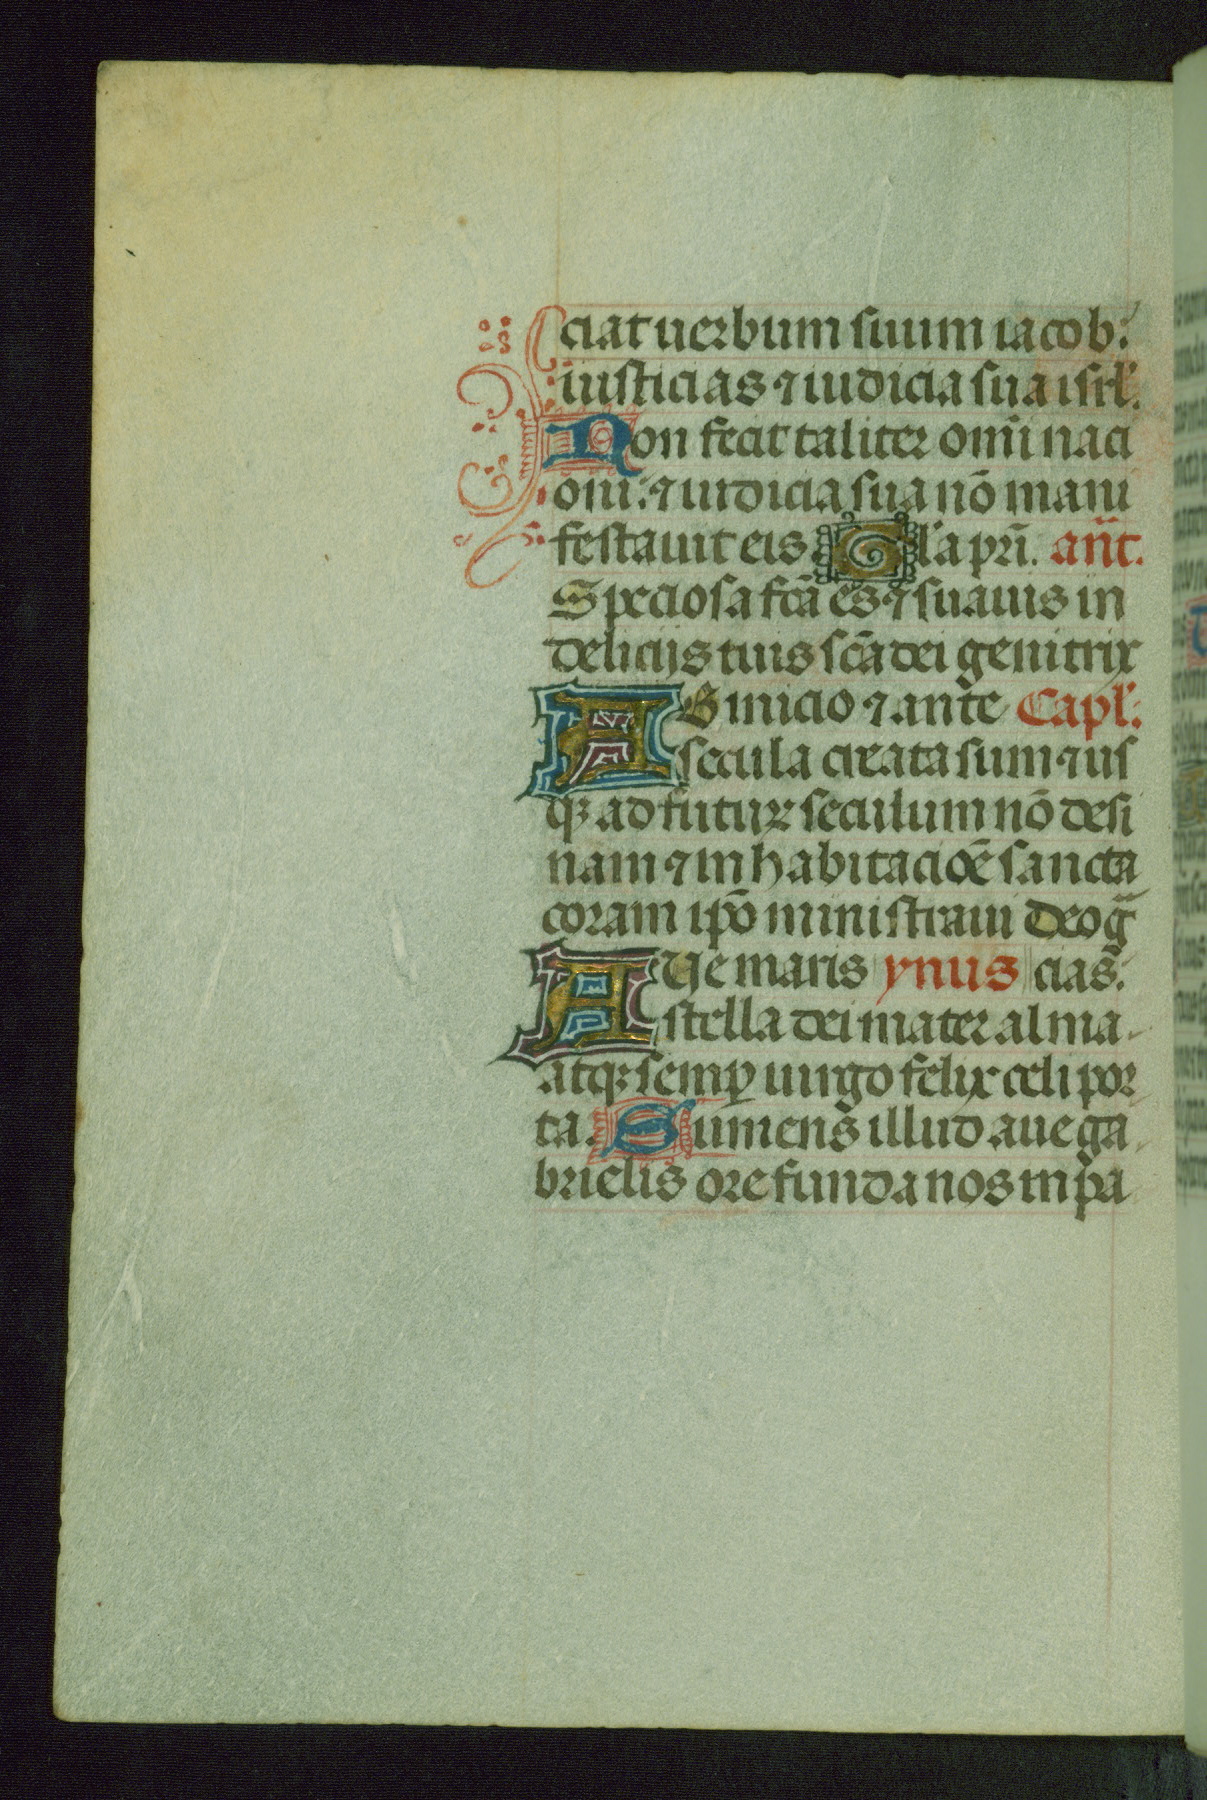 ciat uerbum suum iacob:
iusticias ⁊ iudicia sua isrl̄.
Non fecit taliter om̄i naci
oni: ⁊ iudicia sua nō mani
festauit eis. Gl̓a pr̄i. an̄t.
Speciosa fc̄a es ⁊ suauis in
delicijs tuis sc̄a dei genitrix
AB inicio ⁊ ante Capl̄:
secula creata sum ⁊ us
qꝫ ad futuꝝ seculum nō desi
nam ⁊ in habitacioē sancta
coram ip̄o ministraui Deo gr̄a
AUe maris ynus cias̄.
stella dei mater alma
atqꝫ semꝑ uirgo felix celi por
ta. Sumens illud aue ga
brielis ore funda nos in pa